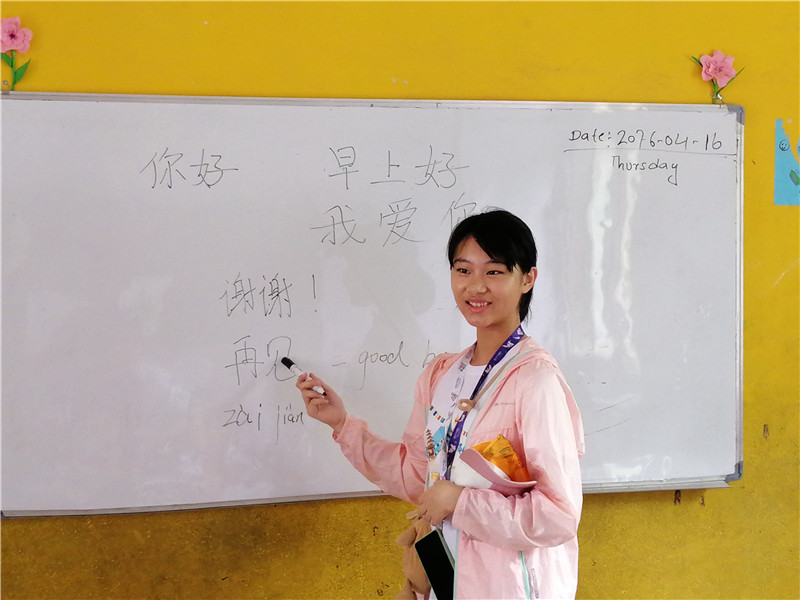 Date: 2076-04-16
Thursday
你好 早上好
我爱你
谢谢！
再见 = good
zài jiàn